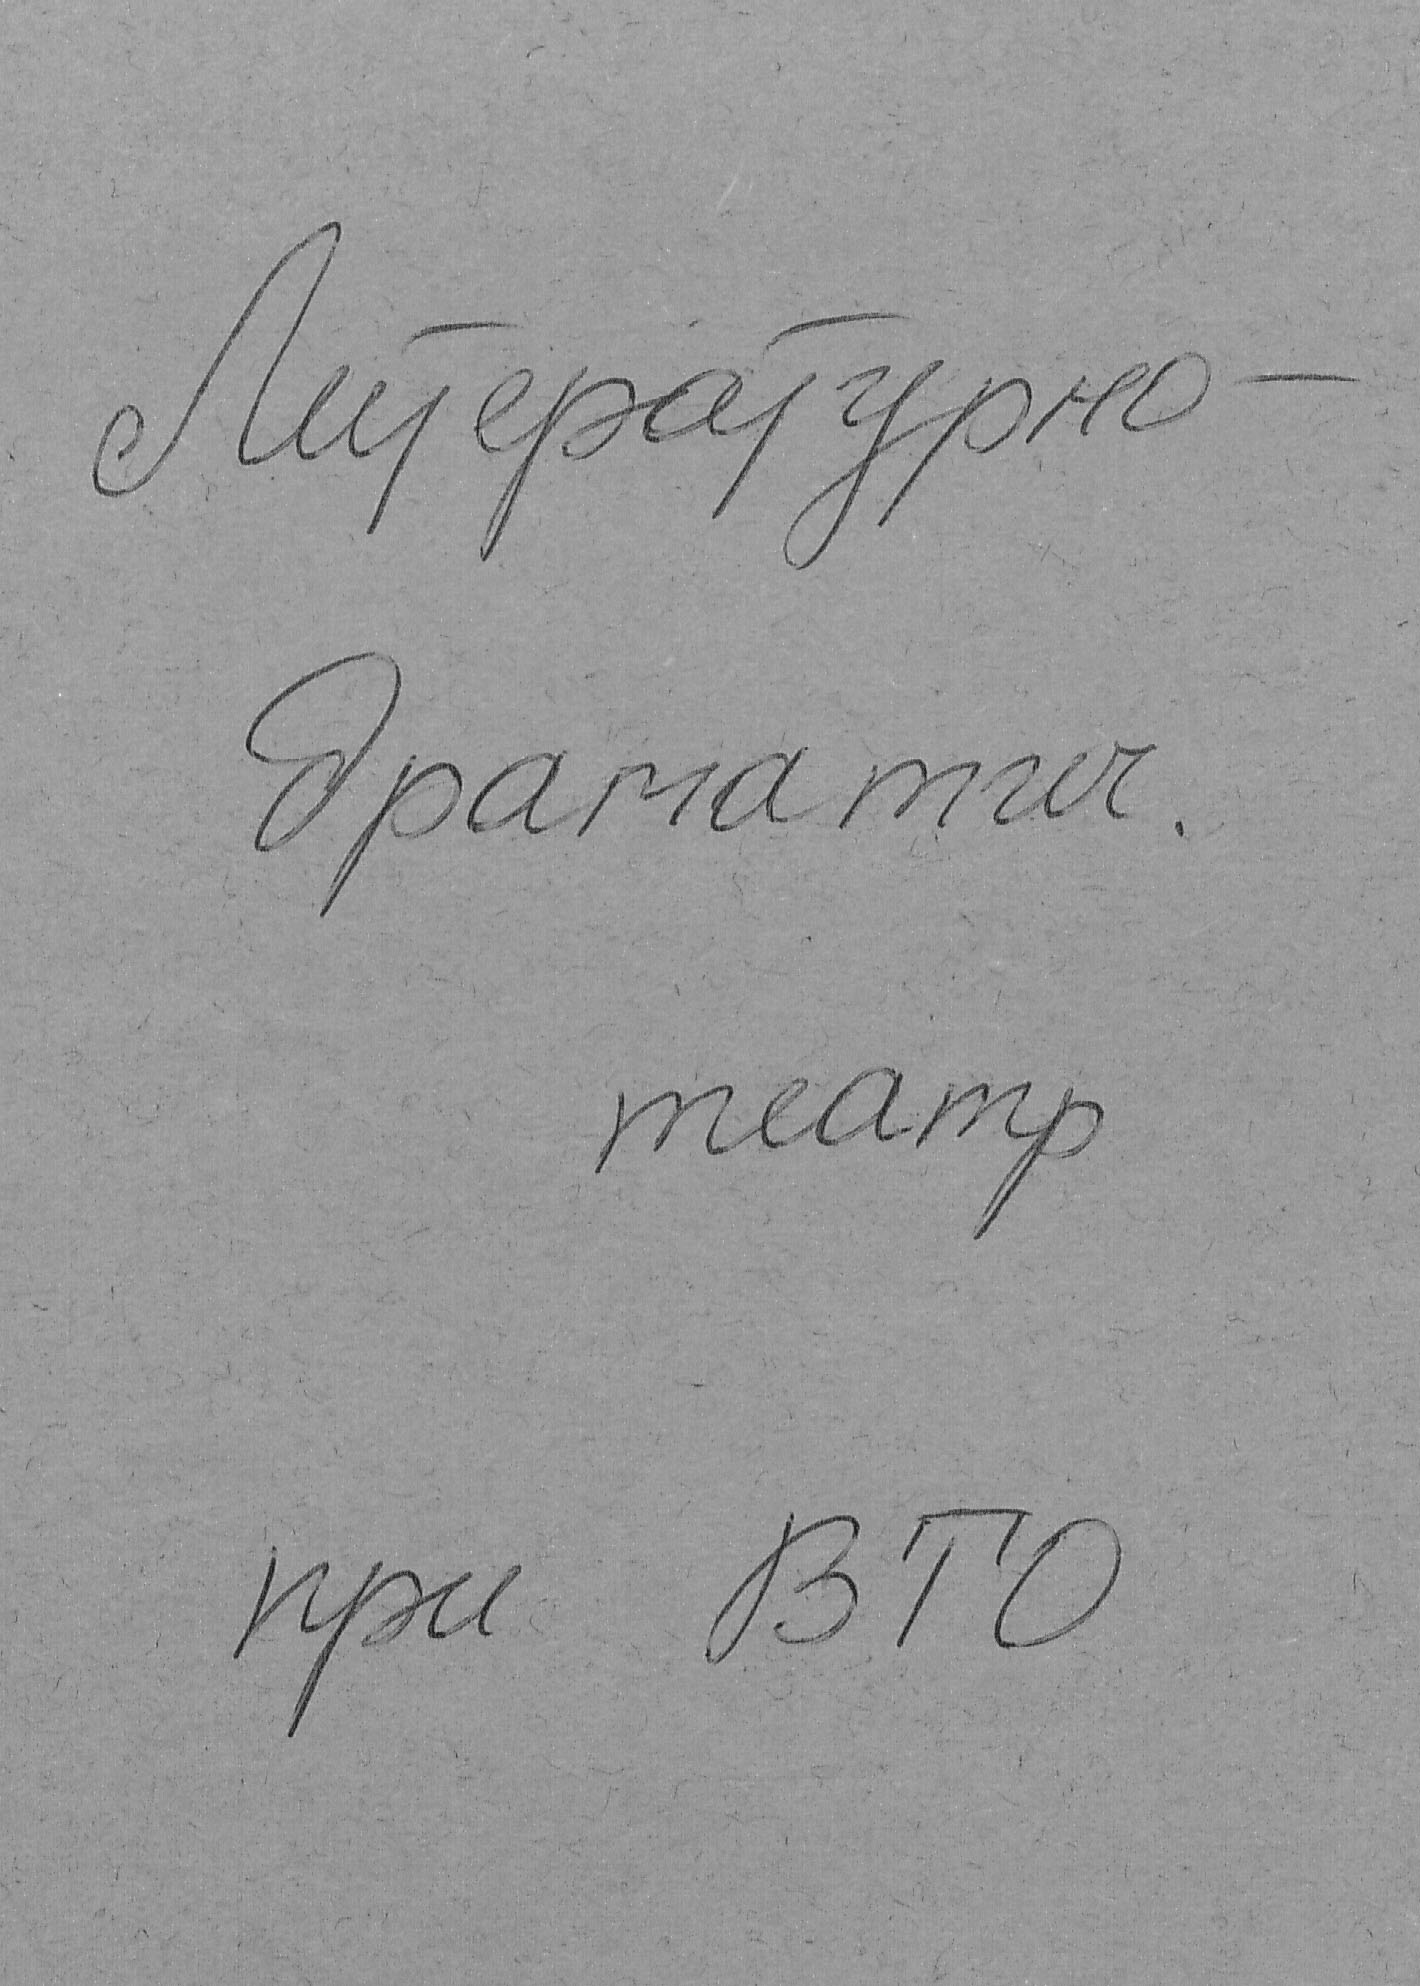 Литературно-
драматич.
театр
при ВТО